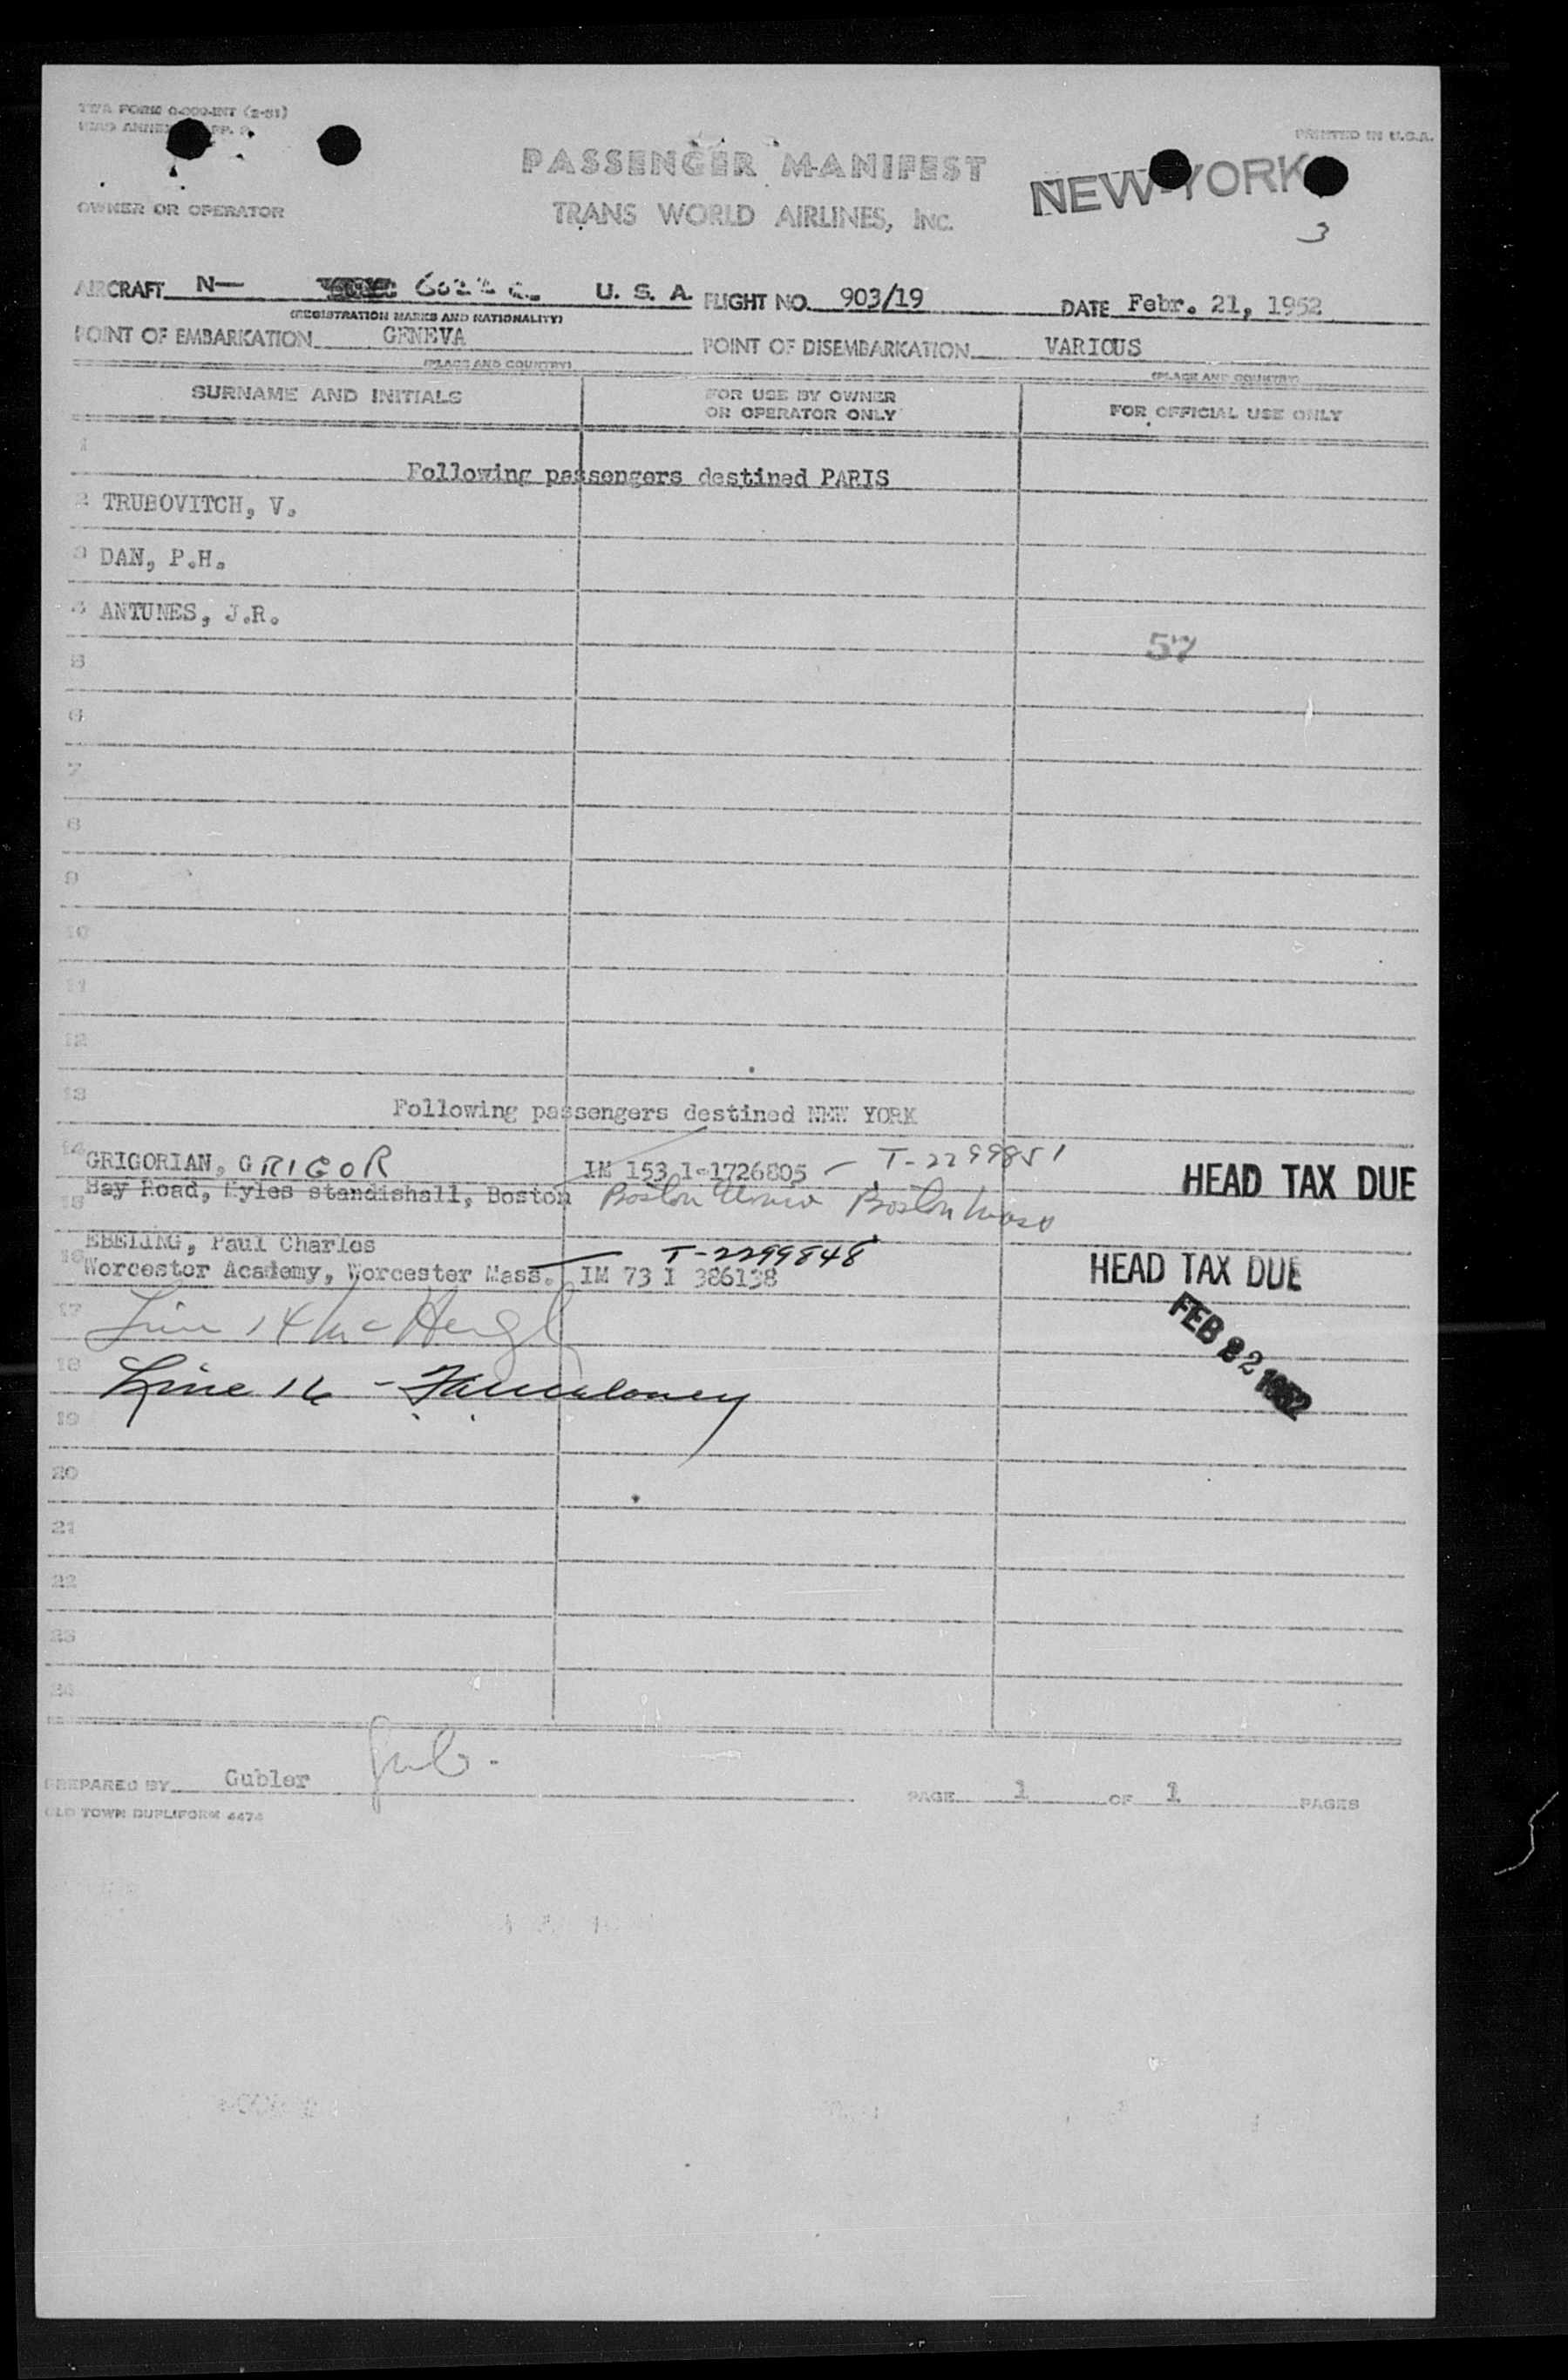 TWA FORM 0-000-INT (2-51)
PRINTED IN U.S.A.
PASSENGER MANIFEST
NEW YORK
OWNER OR OPERATOR
TRANS WORLD AIRLINES, INC.
3
AIRCRAFT N- U. S. A. FLIGHT NO. 903/19 DATE Febr. 21, 1952
(REGISTRATION MARKS AND NATIONALITY)
POINT OF EMBARKATION GENEVA POINT OF DISEMBARKATION VARIOUS
(PLACE AND COUNTRY) (PLACE AND COUNTRY)
SURNAME AND INITIALS FOR USE BY OWNER OR OPERATOR ONLY FOR OFFICIAL USE ONLY
1
Following passengers destined PARIS
2 TRUBOVITCH, V.
3 DAN, P.H.
4 ANTUNES, J.R.
57
5
6
7
8
9
10
11
12
13
Following passengers destined NEW YORK
14 GRIGORIAN, GRIGOR IM 153 I-1726805 - T-2299851 HEAD TAX DUE
15 Bay Road, Myles standishall, Boston Boston Boston Mass
EBELING, Paul Charles T-2299848 HEAD TAX DUE
16 Worcestor Academy, Worcester Mass. IM 73 I 386138
17 Line 14
FEB 22 1952
18 Line 16 -
19
20
21
22
23
24
PREPARED BY Gubler PAGE 1 OF 1 PAGES
OLD TOWN DUPLIFORM 4474